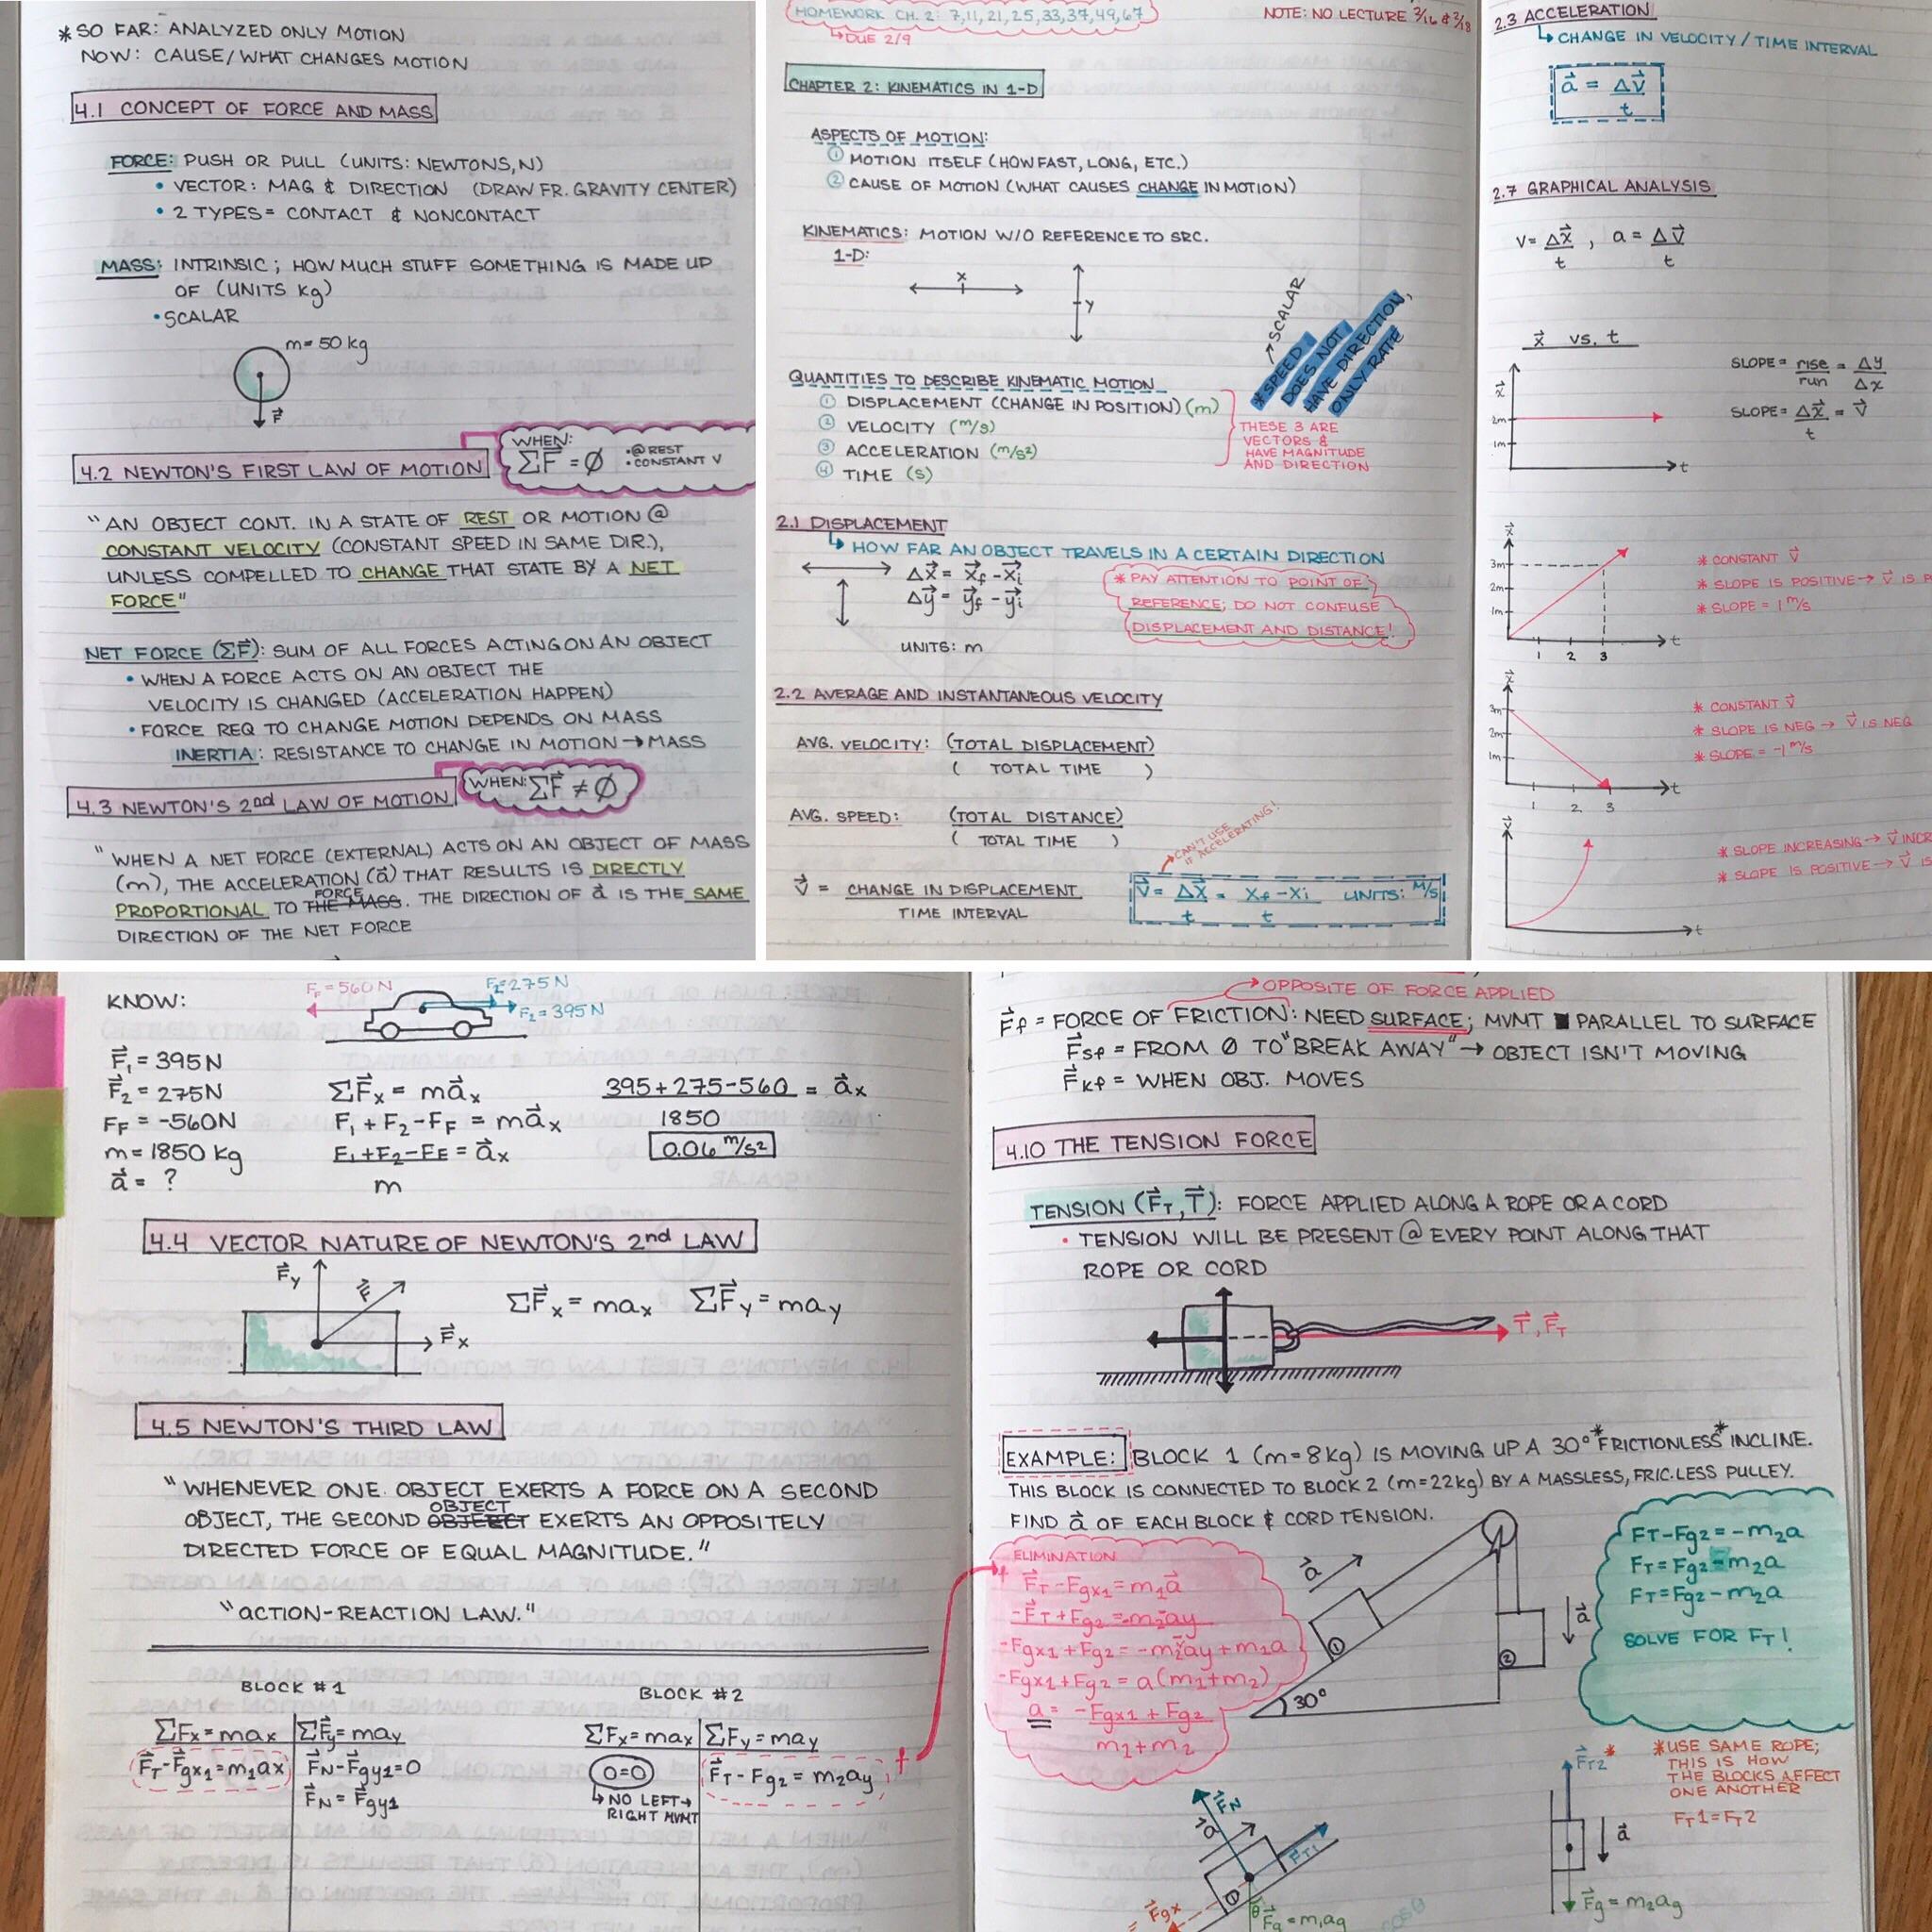 *SO FAR: ANALYZED ONLY MOTION
NOW: CAUSE/WHAT CHANGES MOTION
4.1 CONCEPT OF FORCE AND MASS
FORCE: PUSH OR PULL (UNITS: NEWTONS, N)
• VECTOR: MAG & DIRECTION (DRAW FR. GRAVITY CENTER)
• 2 TYPES = CONTACT & NONCONTACT
MASS: INTRINSIC; HOW MUCH STUFF SOMETHING IS MADE UP
OF (UNITS kg)
• SCALAR
m= 50 kg
F⃗
4.2 NEWTON'S FIRST LAW OF MOTION
WHEN:
ΣF⃗ = Ø
• @ REST
• CONSTANT V
"AN OBJECT CONT. IN A STATE OF REST OR MOTION @
CONSTANT VELOCITY (CONSTANT SPEED IN SAME DIR.),
UNLESS COMPELLED TO CHANGE THAT STATE BY A NET
FORCE"
NET FORCE (ΣF⃗): SUM OF ALL FORCES ACTING ON AN OBJECT
• WHEN A FORCE ACTS ON AN OBJECT THE
VELOCITY IS CHANGED (ACCELERATION HAPPEN)
• FORCE REQ TO CHANGE MOTION DEPENDS ON MASS
INERTIA: RESISTANCE TO CHANGE IN MOTION → MASS
4.3 NEWTON'S 2nd LAW OF MOTION
WHEN: ΣF⃗ ≠ Ø
"WHEN A NET FORCE (EXTERNAL) ACTS ON AN OBJECT OF MASS
(m), THE ACCELERATION (a⃗) THAT RESULTS IS DIRECTLY
FORCE
PROPORTIONAL TO THE MASS. THE DIRECTION OF a⃗ IS THE SAME
DIRECTION OF THE NET FORCE
HOMEWORK CH. 2: 7,11,21,25,33,37,49,67
↳ DUE 2/9
NOTE: NO LECTURE 3/16 & 3/18
CHAPTER 2: KINEMATICS IN 1-D
ASPECTS OF MOTION:
① MOTION ITSELF (HOW FAST, LONG, ETC.)
② CAUSE OF MOTION (WHAT CAUSES CHANGE IN MOTION)
KINEMATICS: MOTION W/O REFERENCE TO SRC.
1-D:
x
y
→ SCALAR
*SPEED
DOES NOT
HAVE DIRECTION,
ONLY RATE
QUANTITIES TO DESCRIBE KINEMATIC MOTION
① DISPLACEMENT (CHANGE IN POSITION) (m)
② VELOCITY (m/s)
③ ACCELERATION (m/s²)
④ TIME (s)
THESE 3 ARE
VECTORS &
HAVE MAGNITUDE
AND DIRECTION
2.1 DISPLACEMENT
↳ HOW FAR AN OBJECT TRAVELS IN A CERTAIN DIRECTION
Δx⃗ = x⃗f - x⃗i
Δy⃗ = y⃗f - y⃗i
UNITS: m
* PAY ATTENTION TO POINT OF
REFERENCE; DO NOT CONFUSE
DISPLACEMENT AND DISTANCE!
2.2 AVERAGE AND INSTANTANEOUS VELOCITY
AVG. VELOCITY: (TOTAL DISPLACEMENT)
( TOTAL TIME )
AVG. SPEED: (TOTAL DISTANCE)
( TOTAL TIME )
→ CAN'T USE
IF ACCELERATING!
V⃗ = CHANGE IN DISPLACEMENT
TIME INTERVAL
V⃗ = Δx⃗ = xf - xi UNITS: m/s
t t
2.3 ACCELERATION
↳ CHANGE IN VELOCITY / TIME INTERVAL
a⃗ = Δv⃗
t
2.7 GRAPHICAL ANALYSIS
v = Δx⃗ , a = Δv⃗
t t
x⃗ vs. t
x⃗
2m
1m
t
SLOPE = rise = Δy
run Δx
SLOPE = Δx⃗ = v⃗
t
x⃗
3m
2m
1m
1 2 3
t
* CONSTANT v⃗
* SLOPE IS POSITIVE → v⃗ IS
* SLOPE = 1 m/s
x⃗
3m
2m
1m
1 2 3
t
* CONSTANT v⃗
* SLOPE IS NEG → v⃗ IS NEG
* SLOPE = -1 m/s
t
* SLOPE INCREASING → v⃗
* SLOPE IS POSITIVE → v⃗
KNOW:
FF = 560 N
F2=275N
F1 = 395N
F⃗1 = 395N
F⃗2 = 275N
FF = -560N
m = 1850 kg
a⃗ = ?
ΣF⃗x = ma⃗x
F1 + F2 - FF = ma⃗x
F1 + F2 - FF = a⃗x
m
395 + 275 - 560 = a⃗x
1850
0.06 m/s²
4.4 VECTOR NATURE OF NEWTON'S 2nd LAW
F⃗y
F⃗
F⃗x
ΣF⃗x = max ΣF⃗y = may
4.5 NEWTON'S THIRD LAW
"WHENEVER ONE OBJECT EXERTS A FORCE ON A SECOND
OBJECT
OBJECT, THE SECOND EXERTS AN OPPOSITELY
DIRECTED FORCE OF EQUAL MAGNITUDE."
"ACTION-REACTION LAW."
BLOCK #1
ΣFx = max ΣF⃗y = may
F⃗T - F⃗gx1 = m1ax F⃗N - F⃗gy1 = 0
F⃗N = F⃗gy1
BLOCK #2
ΣFx = max ΣFy = may
0=0 F⃗T - Fg2 = m2ay
↳ NO LEFT →
RIGHT MVMT
→ OPPOSITE OF FORCE APPLIED
F⃗f = FORCE OF FRICTION: NEED SURFACE; MVMT PARALLEL TO SURFACE
F⃗sf = FROM Ø TO "BREAK AWAY" → OBJECT ISN'T MOVING
F⃗kf = WHEN OBJ. MOVES
4.10 THE TENSION FORCE
TENSION (F⃗T, T⃗): FORCE APPLIED ALONG A ROPE OR A CORD
• TENSION WILL BE PRESENT @ EVERY POINT ALONG THAT
ROPE OR CORD
T⃗, F⃗T
EXAMPLE: BLOCK 1 (m = 8 kg) IS MOVING UP A 30° *FRICTIONLESS* INCLINE.
THIS BLOCK IS CONNECTED TO BLOCK 2 (m=22kg) BY A MASSLESS, FRIC.LESS PULLEY.
FIND a⃗ OF EACH BLOCK & CORD TENSION.
ELIMINATION
F⃗T - Fgx1 = m1a⃗
-FT + Fg2 = -m2ay
-Fgx1 + Fg2 = -m2ay + m1a
-Fgx1 + Fg2 = a(m1+m2)
a = -Fgx1 + Fg2
m1+m2
a⃗
①
30°
②
a⃗
FT - Fg2 = -m2a
FT = Fg2 - m2a
FT = Fg2 - m2a
SOLVE FOR FT!
F⃗N
a⃗
FT1
①
F⃗gx
F⃗g = m1ag
F⃗T2*
*USE SAME ROPE;
THIS IS HOW
THE BLOCKS AFFECT
ONE ANOTHER
FT1 = FT2
a⃗
F⃗g = m2ag